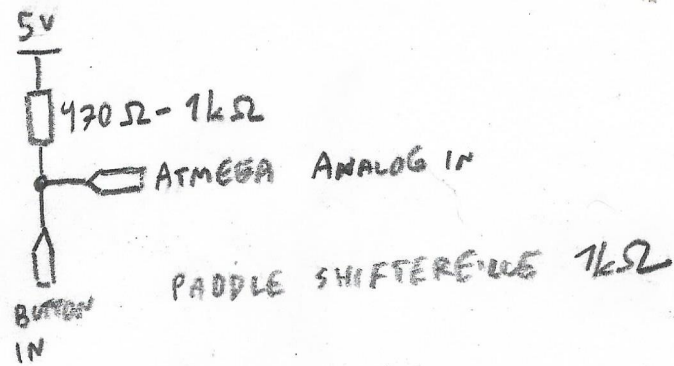 5V
470Ω - 1kΩ
ATMEGA ANALOG IN
PADDLE SHIFTEREILLE 1kΩ
BUTTON
IN